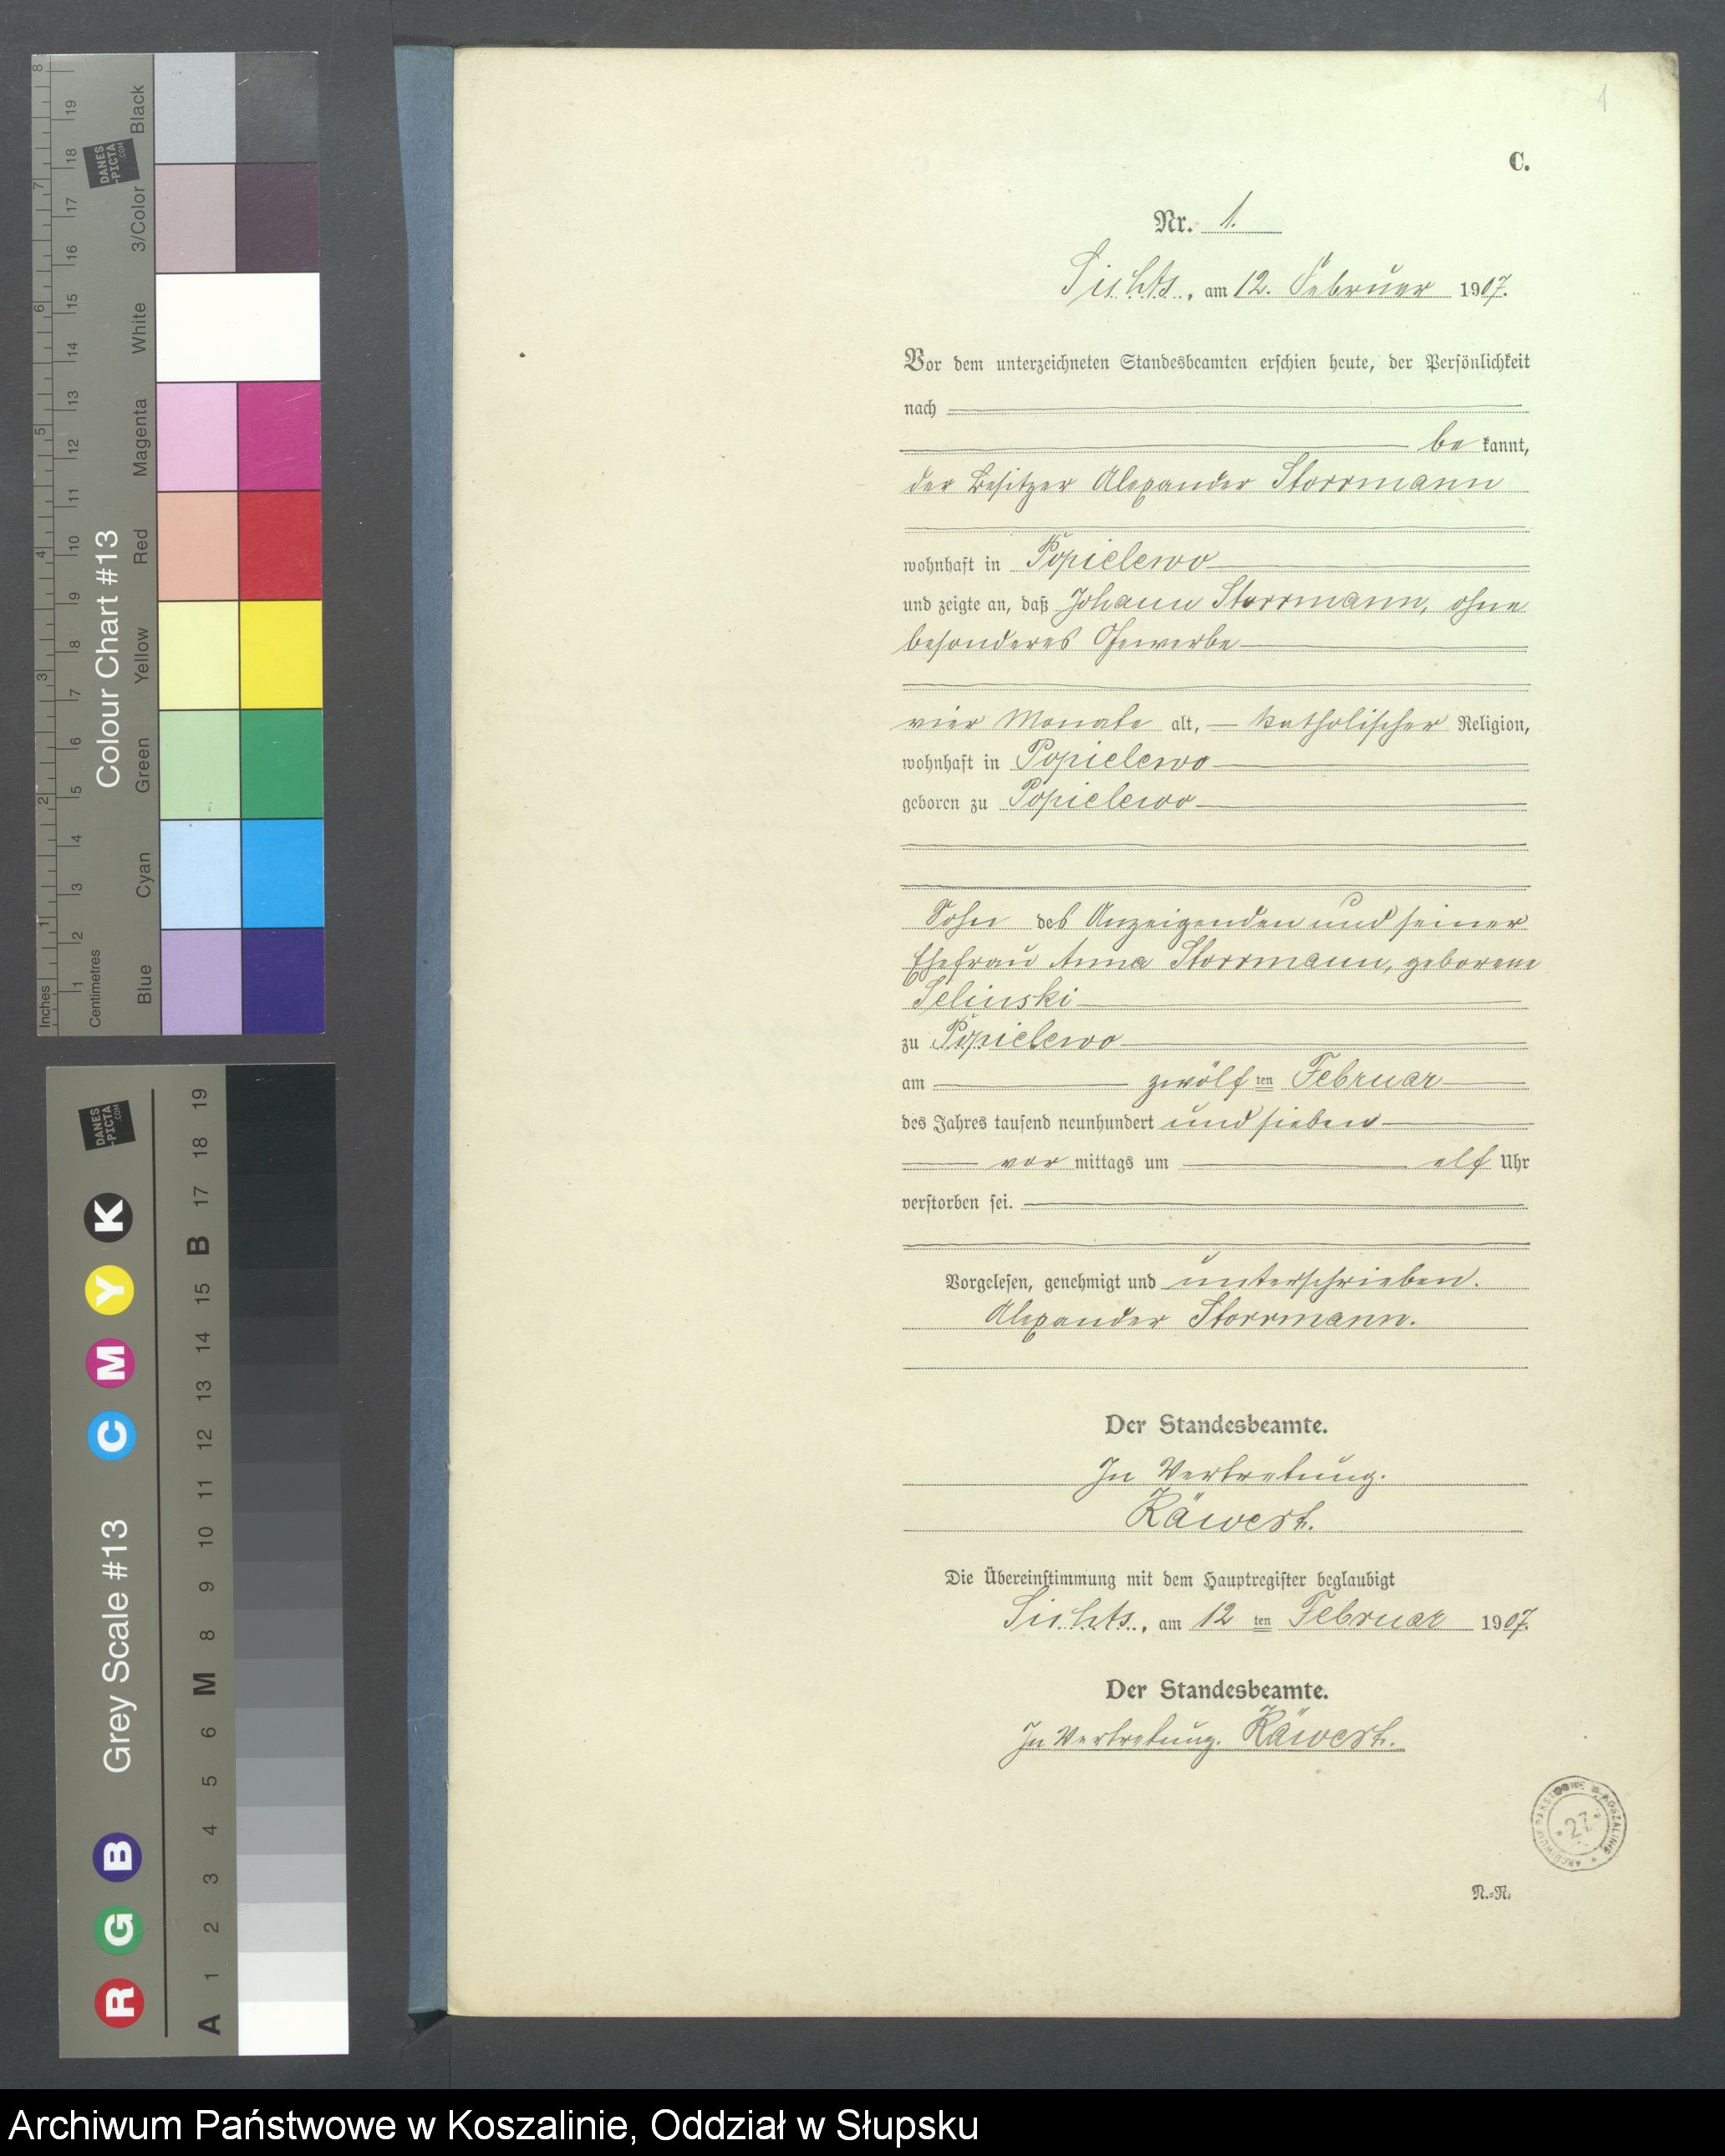 1
C.
Nr. 1.
Sichts, am 12. Februar 1907.
Vor dem unterzeichneten Standesbeamten erschien heute, der Persönlichkeit
nach
be kannt,
der Besitzer Alexander Storrmann
wohnhaft in Popielewo
und zeigte an, daß Johann Storrmann, ohne
besonderes Gewerbe
vier Monate alt, katholischer Religion,
wohnhaft in Popielewo
geboren zu Popielewo
Sohn des Anzeigenden und seiner
Ehefrau Anna Storrmann, geborene
Selinski
zu Popielewo
am zwölf ten Februar
des Jahres tausend neunhundert und sieben
vor mittags um elf Uhr
verstorben sei.
Vorgelesen, genehmigt und unterschrieben.
Alexander Storrmann.
Der Standesbeamte.
In Vertretung.
Räwert.
Die Übereinstimmung mit dem Hauptregister beglaubigt
Sichts, am 12 ten Februar 1907.
Der Standesbeamte.
In Vertretung. Räwert.
ARCHIWUM PAŃSTWOWE W KOSZALINIE
27
N.-R.
Colour Chart #13
Black
3/Color
White
Magenta
Red
Yellow
Green
Cyan
Blue
Inches
1 2 3 4 5 6 7 8
Centimetres
1 2 3 4 5 6 7 8 9 10 11 12 13 14 15 16 17 18 19
DANES
-PICTA
.COM
Grey Scale #13
R G B C M Y K
DANES
-PICTA
.COM
A 1 2 3 4 5 6 M 8 9 10 11 12 13 14 15 B 17 18 19
Archiwum Państwowe w Koszalinie, Oddział w Słupsku